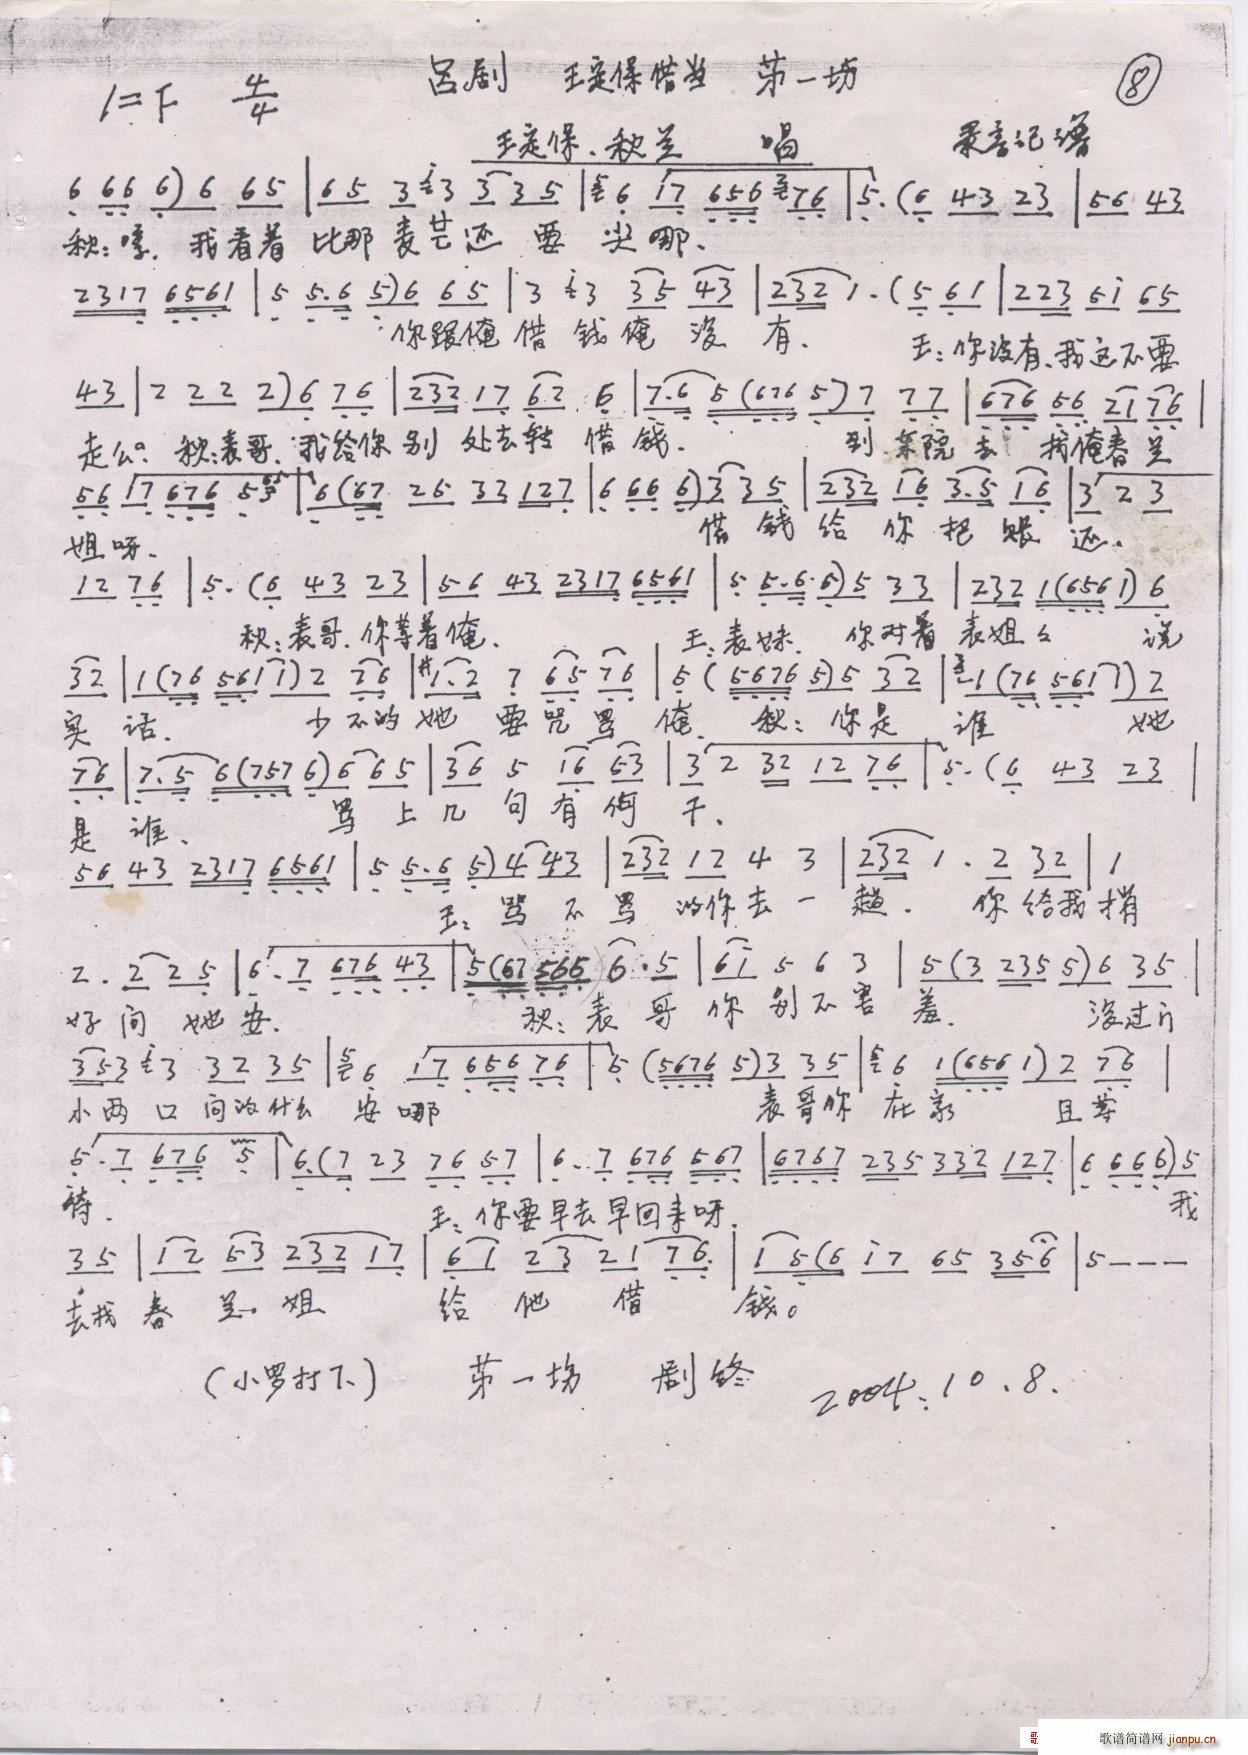 吕剧 王定保借当 第一场 ⑧
1=F 4/4
王定保、秋兰 唱 录音记谱
6 66 6) 6 65 | 65 3 3 3 35 | 6 17 656 76 | 5. (6 43 23 | 56 43
秋: 嗯. 我看着比那麦芒还要尖哪、
2317 6561 | 5 5.6 5) 6 65 | 3 3 35 43 | 232 1. (5 61 | 223 51 65
你跟俺借钱俺没有. 王: 你没有、我这不要
43 | 2 2 2 2) 6 76 | 232 17 62 6 | 7.6 5 (676 5) 7 77 | 676 56 21 76 |
走么? 秋: 表哥、我给你别处去转借钱. 到东院去 找俺春兰
56 17 676 53 | 6 (67 25 33 127 | 6 66 6) 3 35 | 232 16 3.5 16 | 3 2 3
姐呀、 借钱给你把账还.
12 76 | 5. (6 43 23 | 56 43 2317 6561 | 5 5.6 5) 5 33 | 232 1(6561) 6
秋: 表哥、你等着俺. 王: 表妹、 你对着表姐么 说
32 | 1 (76 561 1) 2 76 | #1.2 7 65 76 | 5 (5676 5) 5 32 | 1 (76 561 1) 2
实话. 少不的她要咒骂俺. 秋: 你是谁 她
76 | 7.5 6 (757 6) 6 65 | 36 5 16 53 | 3 2 32 12 76 | 5. (6 43 23 |
是谁、 骂上几句有何干.
56 43 2317 6561 | 5 5.6 5) 4 43 | 232 12 4 3 | 232 1. 2 32 | 1
王: 骂不骂的你去一趟. 你给我捎
2. 2 25 | 6. 7 676 43 | 5 (67 565 6. 5 | 61 5 6 3 | 5 (3 235 5) 6 35 |
好问她安. 秋: 表哥你别不害羞. 没过门
353 3 32 35 | 6 17 656 76 | 5 (5676 5) 3 35 | 6 1 (656 1) 2 76 |
小两口问的什么安哪 表哥你在家 且等
5. 7 676 5 | 6. (7 23 76 57 | 6. 7 676 567 | 6767 235 332 127 | 6 66 6) 5
待. 王: 你要早去早回来呀. 我
35 | 12 53 232 17 | 61 23 21 76 | 1 5 (6 i7 65 356 | 5 - - -
去找春兰姐 给他借钱。
(小罗打下) 第一场 剧终 2004.10.8.
歌谱简谱网 jianpu.cn